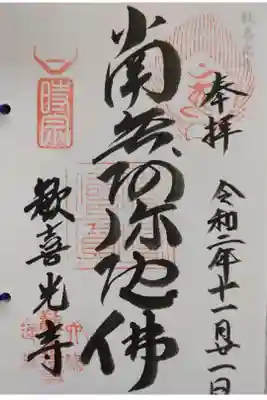 奉拝
令和二年十一月廿一日
南無阿弥陀佛
時宗
歓喜光寺